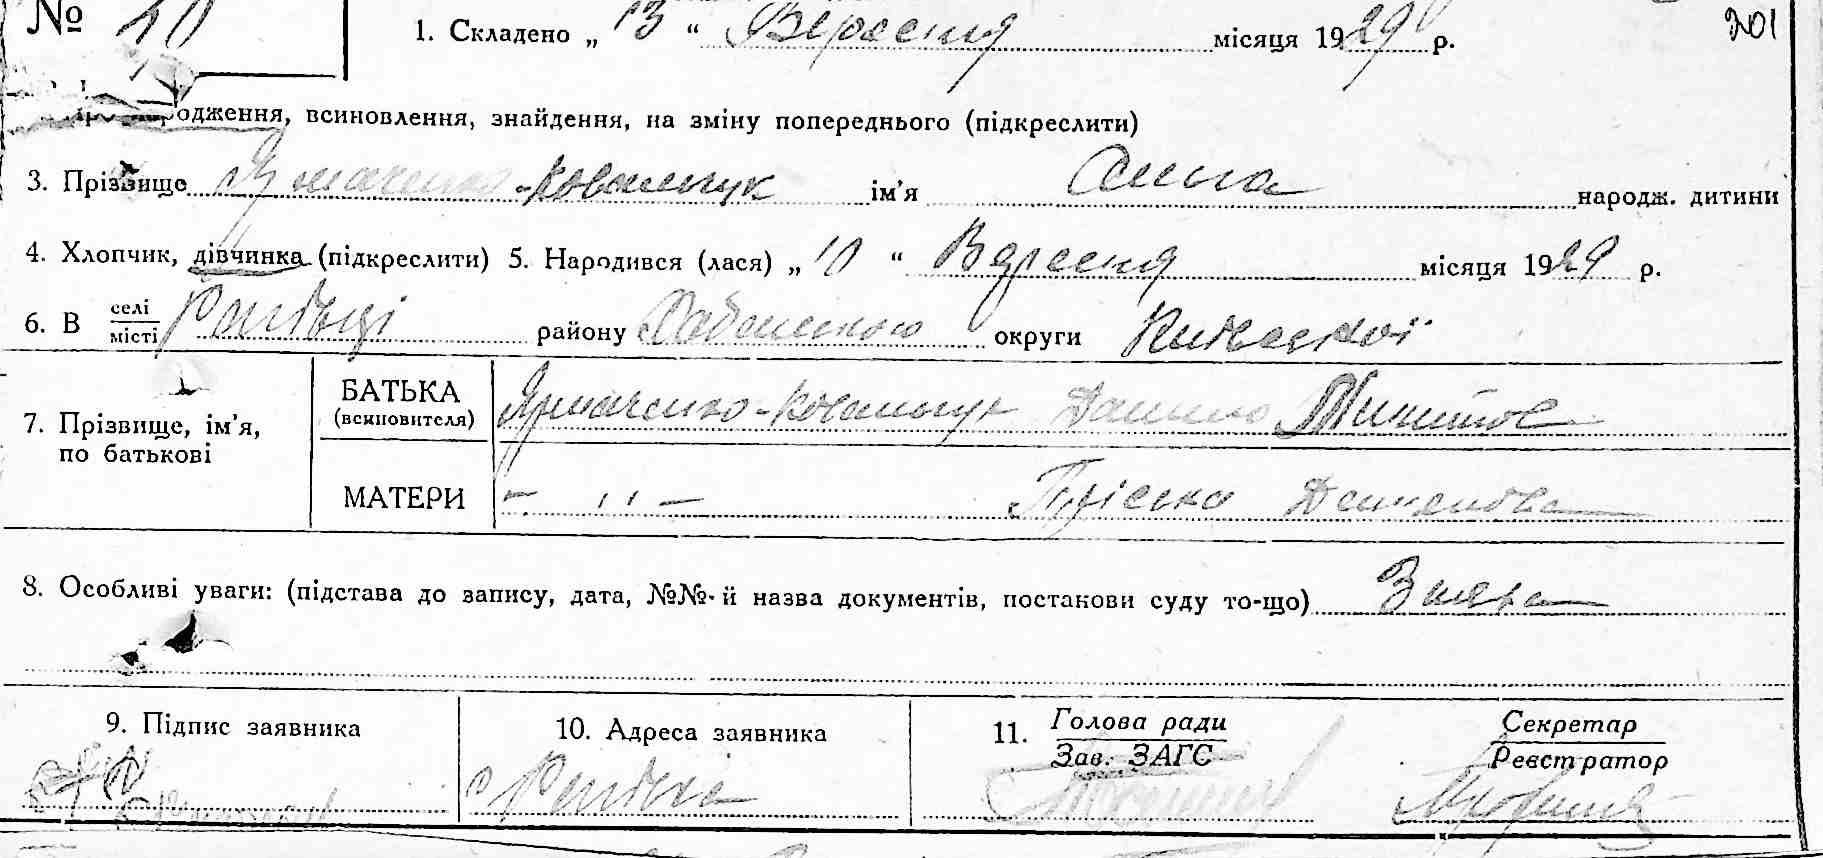 № 40
1. Складено „ 13 “ Вересня місяця 1929 р.
201
одження, всиновлення, знайдення, на зміну попереднього (підкреслити)
3. Прізвище Ярмаченко-Ковальчук ім'я Анна народж. дитини
4. Хлопчик, дівчинка (підкреслити) 5. Народився (лася) „ 10 “ Вересня місяця 1929 р.
6. В селі/місті району округи Київської
7. Прізвище, ім'я, по батькові
БАТЬКА Ярмаченко-Ковальчук Данило
(всиновителя)
МАТЕРИ – ,, – Пріська
8. Особливі уваги: (підстава до запису, дата, №№· й назва документів, постанови суду то-що) Заява
9. Підпис заявника 10. Адреса заявника 11. Голова ради Секретар
Зав. ЗАГС Реєстратор